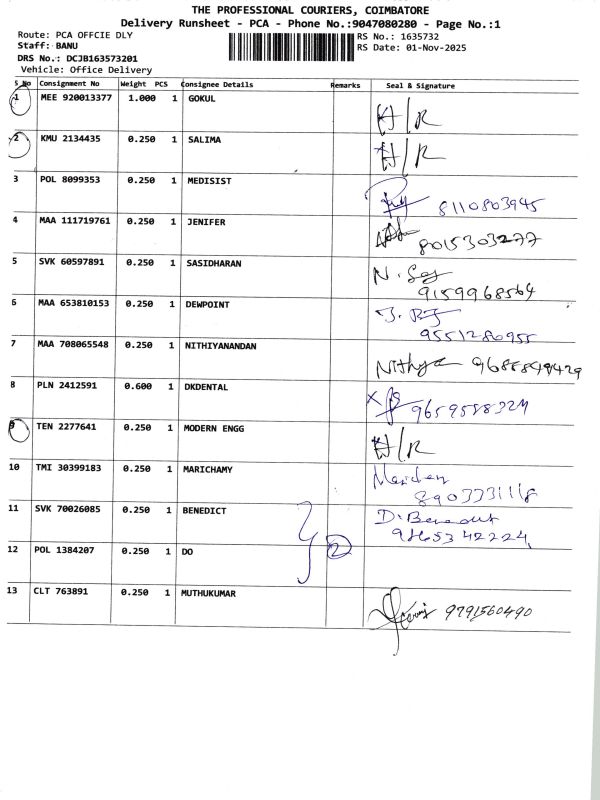 THE PROFESSIONAL COURIERS, COIMBATORE
Delivery Runsheet - PCA - Phone No.:9047080280 - Page No.:1
Route: PCA OFFCIE DLY
RS No.: 1635732
Staff: BANU
RS Date: 01-Nov-2025
DRS No.: DCJB163573201
Vehicle: Office Delivery
S No Consignment No Weight PCS Consignee Details Remarks Seal & Signature
1 MEE 920013377 1.000 1 GOKUL H/R
2 KMU 2134435 0.250 1 SALIMA H/R
3 POL 8099353 0.250 1 MEDISIST 8110803945
4 MAA 111719761 0.250 1 JENIFER 8015303277
5 SVK 60597891 0.250 1 SASIDHARAN N.
9159968564
6 MAA 653810153 0.250 1 DEWPOINT
9551286955
7 MAA 708065548 0.250 1 NITHIYANANDAN Nithya
8 PLN 2412591 0.600 1 DKDENTAL X
9 TEN 2277641 0.250 1 MODERN ENGG H/R
10 TMI 30399183 0.250 1 MARICHAMY
8903331118
11 SVK 70026085 0.250 1 BENEDICT D. Benedict
9865342224
12 POL 1384207 0.250 1 DO 2
13 CLT 763891 0.250 1 MUTHUKUMAR 9791560490